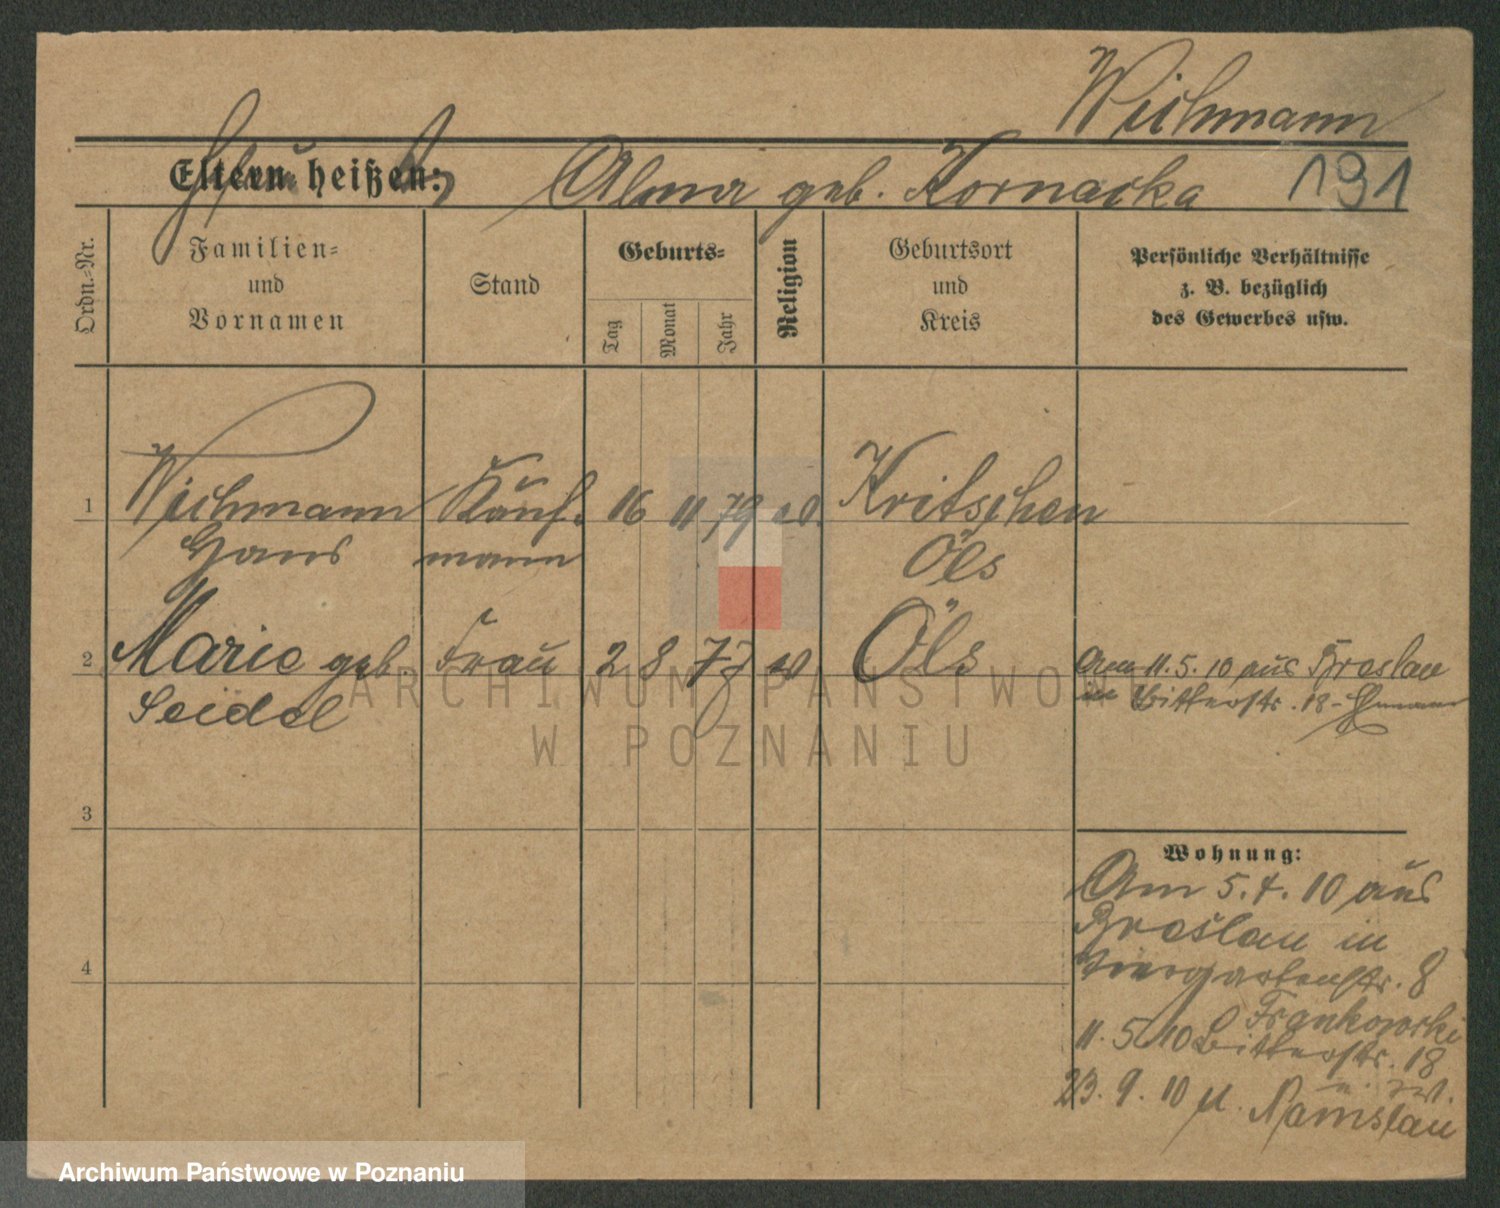 Wichmann
Eltern heißen: Alma geb. Kornacka 191
Ordn.-Nr.
Familien-
und
Vornamen
Stand
Geburts-
Tag
Monat
Jahr
Religion
Geburtsort
und
Kreis
Persönliche Verhältnisse
z. B. bezüglich
des Gewerbes usw.
1 Wichmann Kauf- 16 11 79 ev. Kritschen
Hans mann Öls
2 Marie geb. Frau 2 8 77 ev Öls
Seidel
Am 11. 5. 10 aus Breslau
in Bitterstr. 18 - Ehmann
3
4
Wohnung:
Am 5. 4. 10 aus
Breslau in
Tiergartenstr. 8
Frankowski
11. 5. 10 Bitterstr. 18
23. 9. 10 n. Namslau
ARCHIWUM PAŃSTWOWE
W POZNANIU
Archiwum Państwowe w Poznaniu